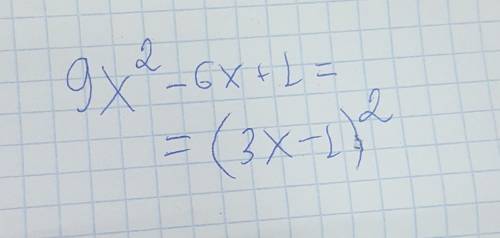 9x² - 6x + 1 =
= (3x - 1)²